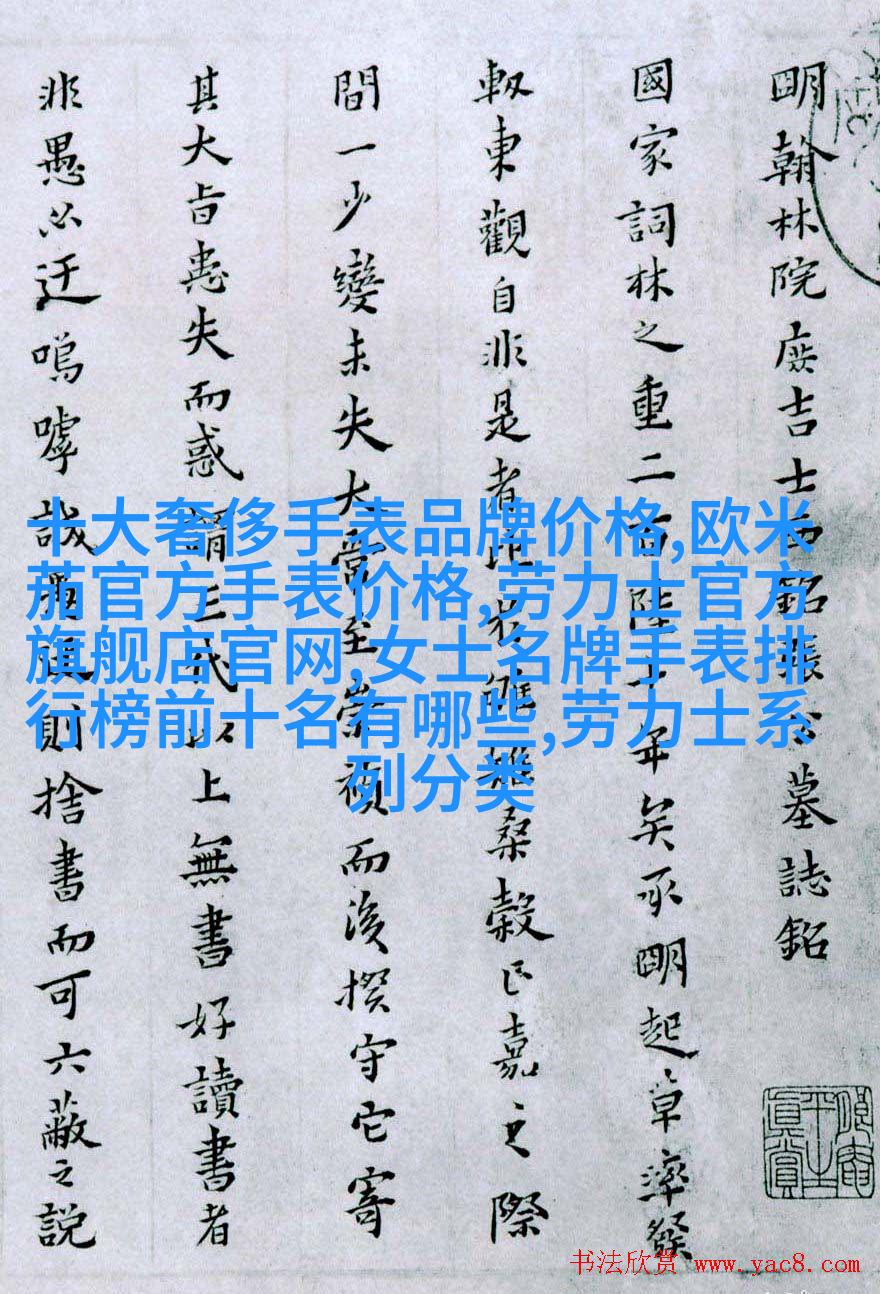 明翰林院庶吉士西銘張公墓誌銘
國家詞林之重二百陸十年矣承明起草潔發
軔東觀自非是者地呂雖雜桑穀正嘉之際
間一少變未失大常至崇禎而後揆守它寄
其大旨悉失而惑謂三代以上無書好讀書者
非愚必迂嗚嘑誠則捨書而可六蔽之說
十大奢侈手表品牌价格,欧米
茄官方手表价格,劳力士官方
旗舰店官网,女士名牌手表排
行榜前十名有哪些,劳力士系
列分类
真賞
书法欣赏 www.yac8.com